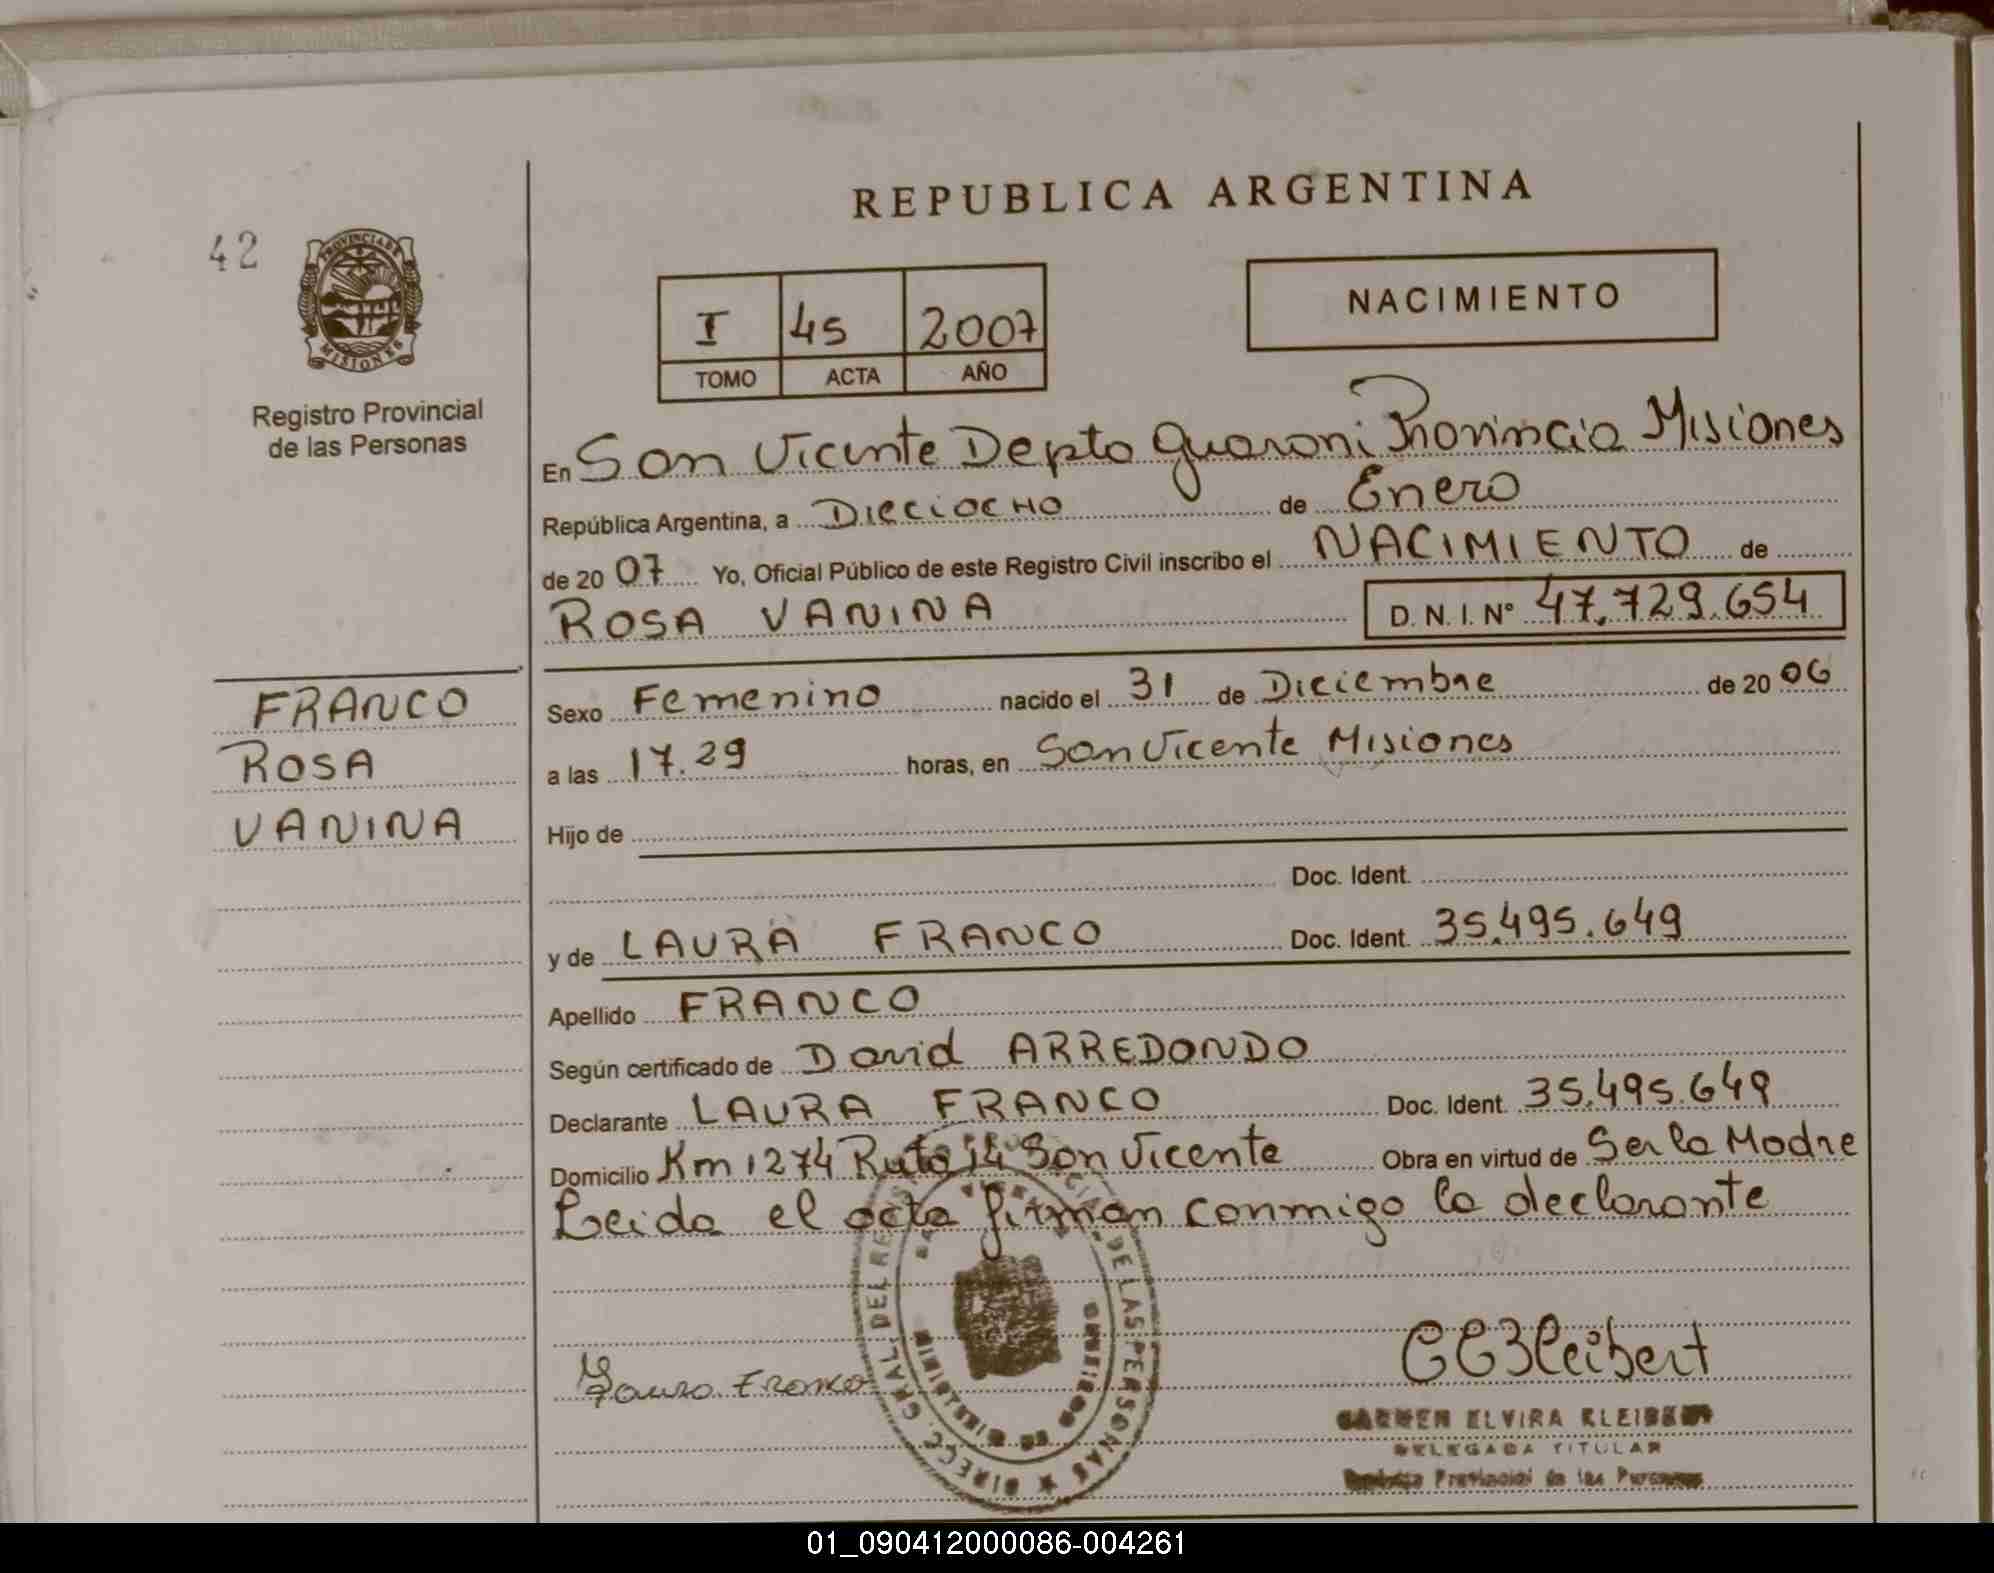 REPUBLICA ARGENTINA
42
PROVINCIA DE
MISIONES
Registro Provincial
de las Personas
I 45 2007
TOMO ACTA AÑO
NACIMIENTO
En San Vicente Depto Guarani Provincia Misiones
República Argentina, a Dieciocho de Enero
de 2007 Yo, Oficial Público de este Registro Civil inscribo el NACIMIENTO de
ROSA VANINA D. N. I. Nº 47.729.654
FRANCO
ROSA
VANINA
Sexo Femenino nacido el 31 de Diciembre de 2006
a las 17.29 horas, en San Vicente Misiones
Hijo de
Doc. Ident.
y de LAURA FRANCO Doc. Ident. 35.495.649
Apellido FRANCO
Según certificado de David ARREDONDO
Declarante LAURA FRANCO Doc. Ident. 35.495.649
Domicilio Km 1274 Ruta 14 San Vicente Obra en virtud de Ser la Madre
Leida el acta firman conmigo la declarante
DIRECC. GRAL. DEL REG DE LAS PERSONAS
Laura Franco
CEKleibert
CARMEN ELVIRA KLEIBERT
DELEGADA TITULAR
Provincial de las Personas
01_090412000086-004261